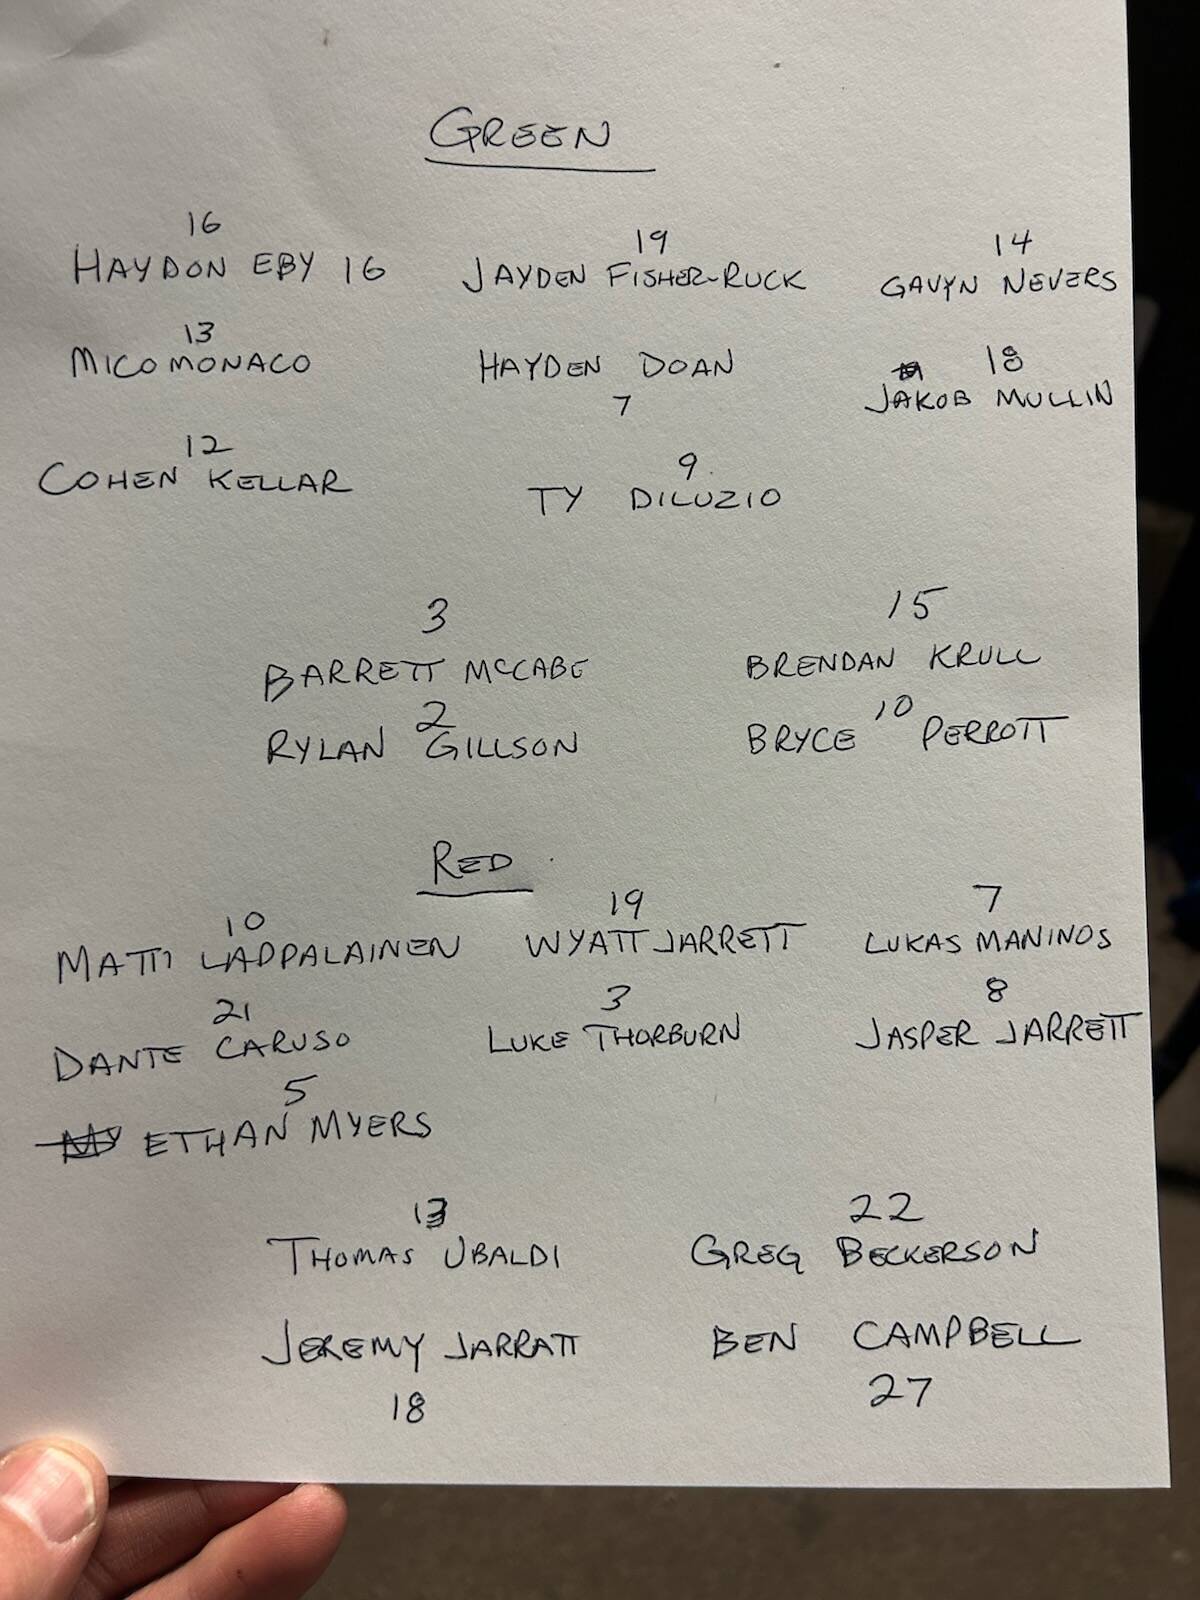 GREEN
16 19 14
HAYDON EBY 16 JAYDEN FISHER-RUCK GAVYN NEVERS
13 18
MICO MONACO HAYDEN DOAN JAKOB MULLIN
7
12 9
COHEN KELLAR TY DILUZIO
3 15
BARRETT MCCABE BRENDAN KRULL
2 10
RYLAN GILLSON BRYCE PERROTT
RED
10 19 7
MATTI LAPPALAINEN WYATT JARRETT LUKAS MANINOS
21 3 8
DANTE CARUSO LUKE THORBURN JASPER JARRETT
5
ETHAN MYERS
13 22
THOMAS UBALDI GREG BECKERSON
JEREMY JARRATT BEN CAMPBELL
18 27